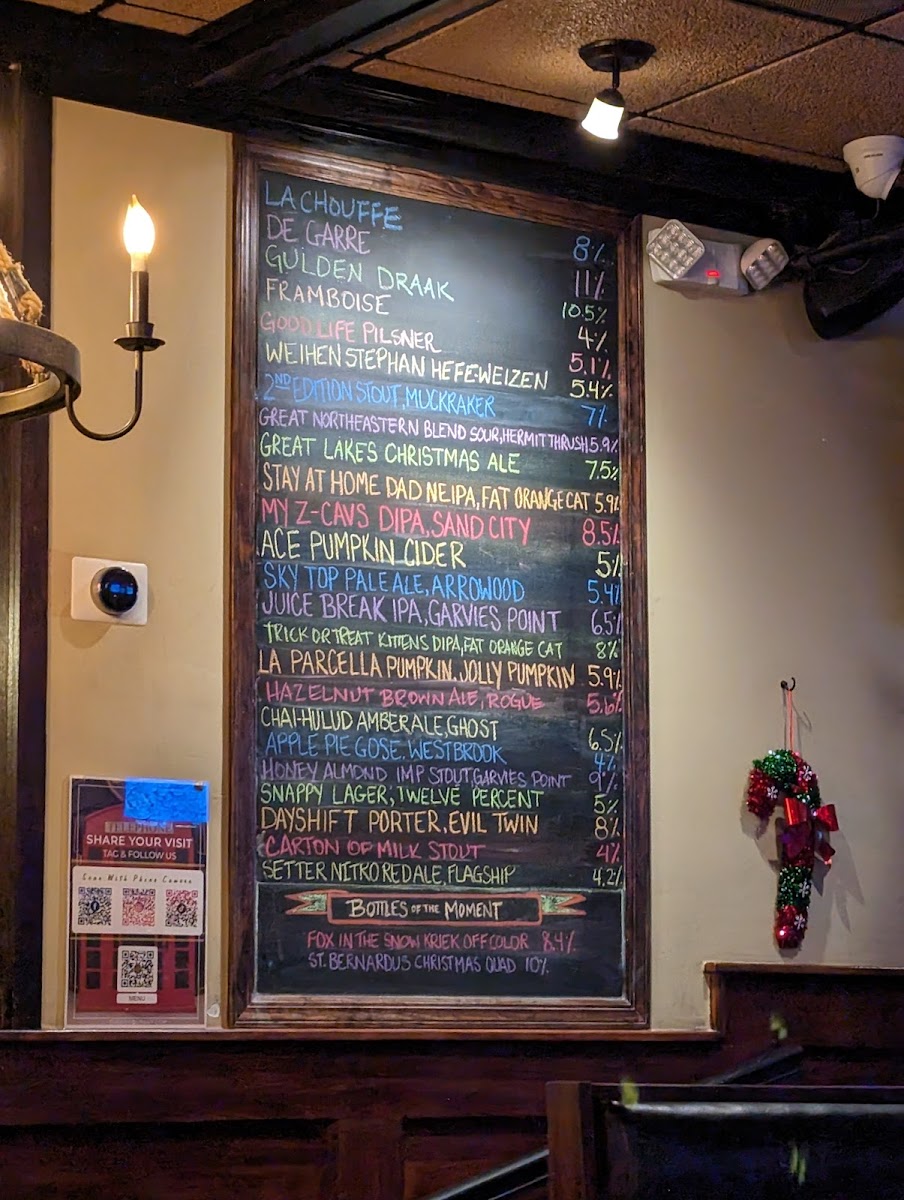 LA CHOUFFE 8%
DE GARRE 11%
GULDEN DRAAK 10.5%
FRAMBOISE 4%
GOOD LIFE PILSNER 5.1%
WEIHENSTEPHAN HEFE-WEIZEN 5.4%
2ND EDITION STOUT, MUCKRAKER 7%
GREAT NORTHEASTERN BLEND SOUR, HERMIT THRUSH 5.9%
GREAT LAKES CHRISTMAS ALE 7.5%
STAY AT HOME DAD NEIPA, FAT ORANGE CAT 5.9%
MY Z-CAVS DIPA, SAND CITY 8.5%
ACE PUMPKIN CIDER 5%
SKY TOP PALE ALE, ARROWOOD 5.4%
JUICE BREAK IPA, GARVIES POINT 6.5%
TRICK OR TREAT KITTENS DIPA, FAT ORANGE CAT 8%
LA PARCELLA PUMPKIN, JOLLY PUMPKIN 5.9%
HAZELNUT BROWN ALE, ROGUE 5.6%
CHAI-HULUD AMBER ALE, GHOST 6.5%
APPLE PIE GOSE, WESTBROOK 4%
HONEY ALMOND IMP STOUT, GARVIES POINT 9%
SNAPPY LAGER, TWELVE PERCENT 5%
DAYSHIFT PORTER, EVIL TWIN 8%
CARTON OF MILK STOUT 4%
SETTER NITRO RED ALE, FLAGSHIP 4.2%
BOTTLES OF THE MOMENT
FOX IN THE SNOW KRIEK OFF COLOR 8.4%
ST. BERNARDUS CHRISTMAS QUAD 10%
TELEPHONE
SHARE YOUR VISIT
TAG & FOLLOW US
Scan With Phone Camera
MENU